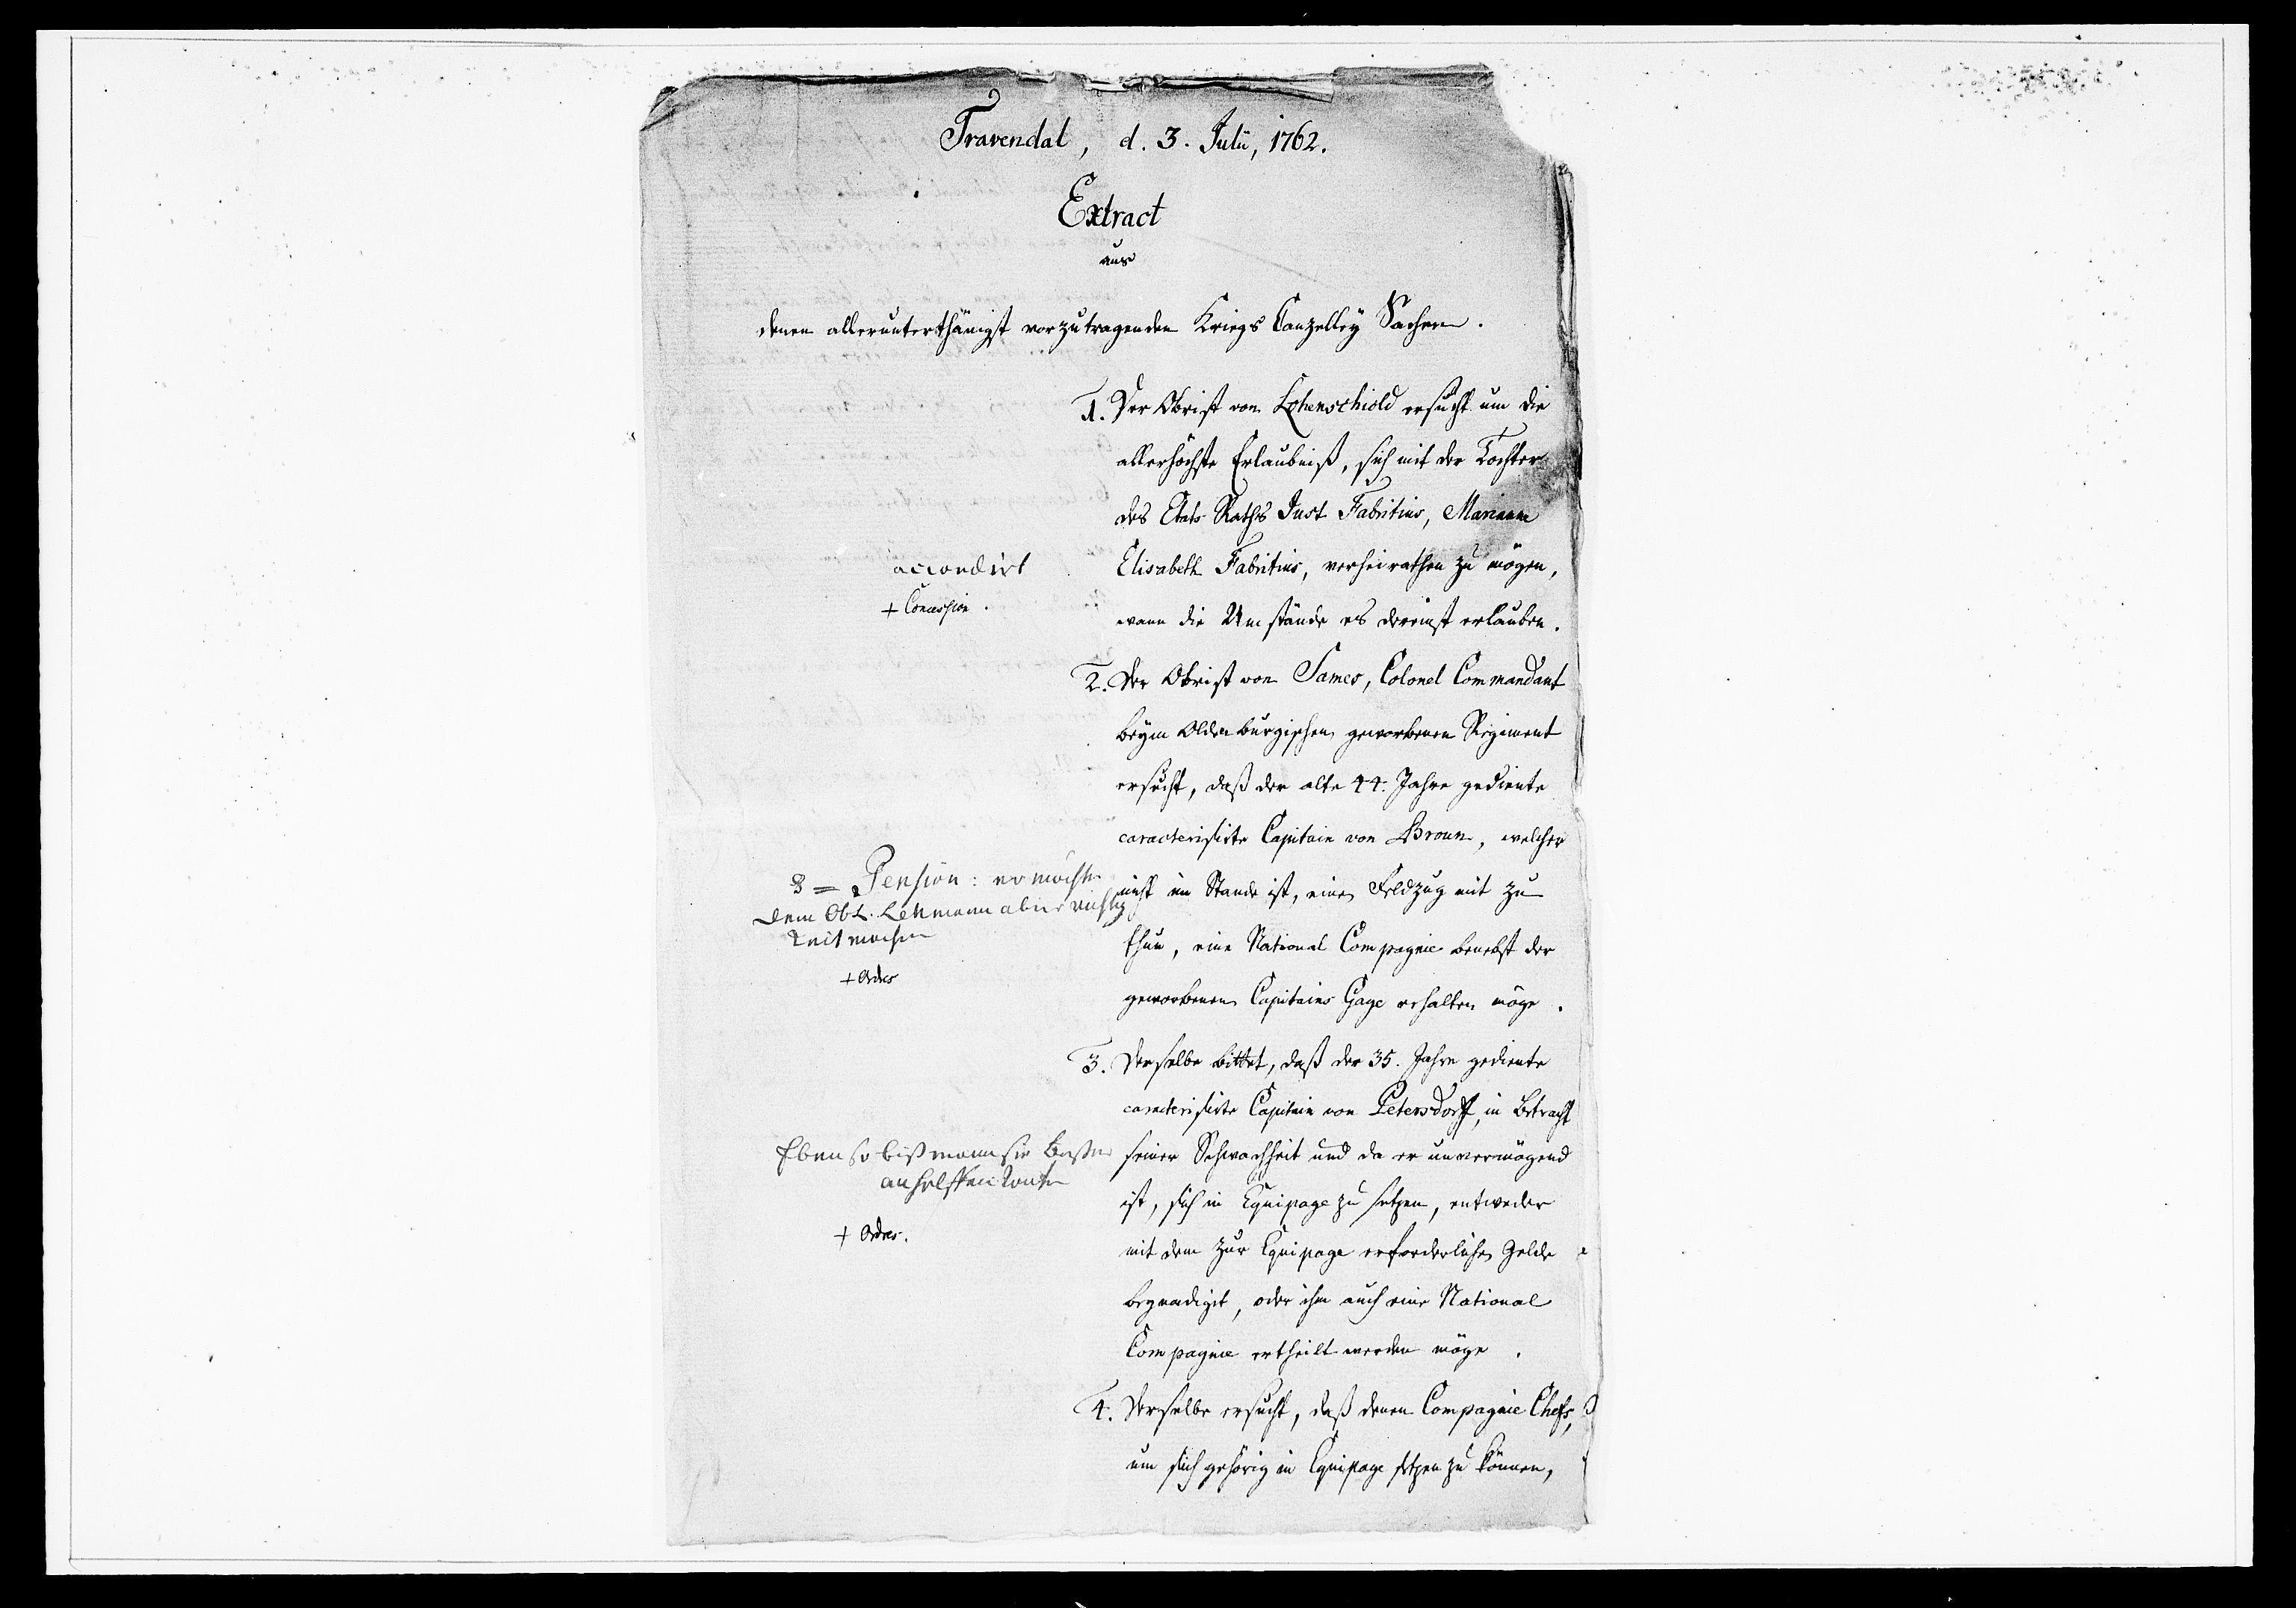 Travendal, d. 3. Julii, 1762.
Extract
aus
denen allerunterthänigst vorzutragenden Kriegs Canzelley Sachen.
1. Der Obrist von Lohenschiold ersucht um die
allerhöchste Erlaubniß, sich mit der Tochter
des Etats Raths Just Fabritius, Mariana
Elisabeth Fabritius, verheirathen zu mögen,
wann die Umstände es dereinst erlauben.
accordirt
+ Concession.
2. Der Obrist von Sames, Colonel Commandant
beym Oldenburgischen geworbenen Regiment
ersucht, daß der alte 44. Jahre gediente
caracterisirte Capitain von Broun, welcher
nicht im Stande ist, einen Feldzug mit zu
thun, eine National Compagnie benebst der
geworbenen Capitains Gage erhalten möge.
3 = Pension: er möchte
dem Obl. Lehmann
machen
+ Ordres
3. Derselbe bittet, daß der 35. Jahre gediente
caracterisirte Capitain von Petersdorff, in Betracht
seiner Schwachheit und da er unvermögend
ist, sich in Equipage zu setzen, entweder
mit dem zur Equipage erforderlichen Gelde
begnadigt, oder ihm auch eine National
Compagnie ertheilt werden möge.
Eben so biß mann sie besser
anhelffen konte
+ Ordres.
4. Derselbe ersucht, daß denen Compagnie Chefs,
um sich gehörig in Equipage setzen zu können,